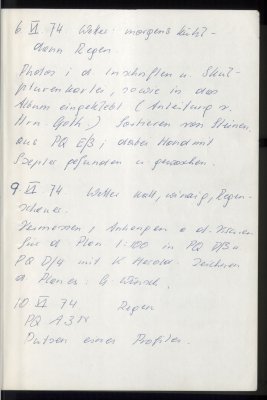 6. VI. 74. Wetter: morgens kühl -
dann Regen.
Photos i d Inschriften u. Skul-
pturenkartei, sowie in das
Album eingeklebt (Anleitung v.
Hrn. Goth.) Sortieren von Steinen
aus PQ E/3; dabei Hand mit
Szepter gefunden u. gewaschen.
9. VI. 74. Wetter kalt, windig, Regen-
schauer.
Vermessen, Anhängen a d.
für d. Plan 1:100 in PQ D/3 u.
PQ D/4 mit K Herold. Zeichnen
d Planes: G. Wünsch.
10. VI. 74 Regen
PQ A 3
Putzen eines Profiles.